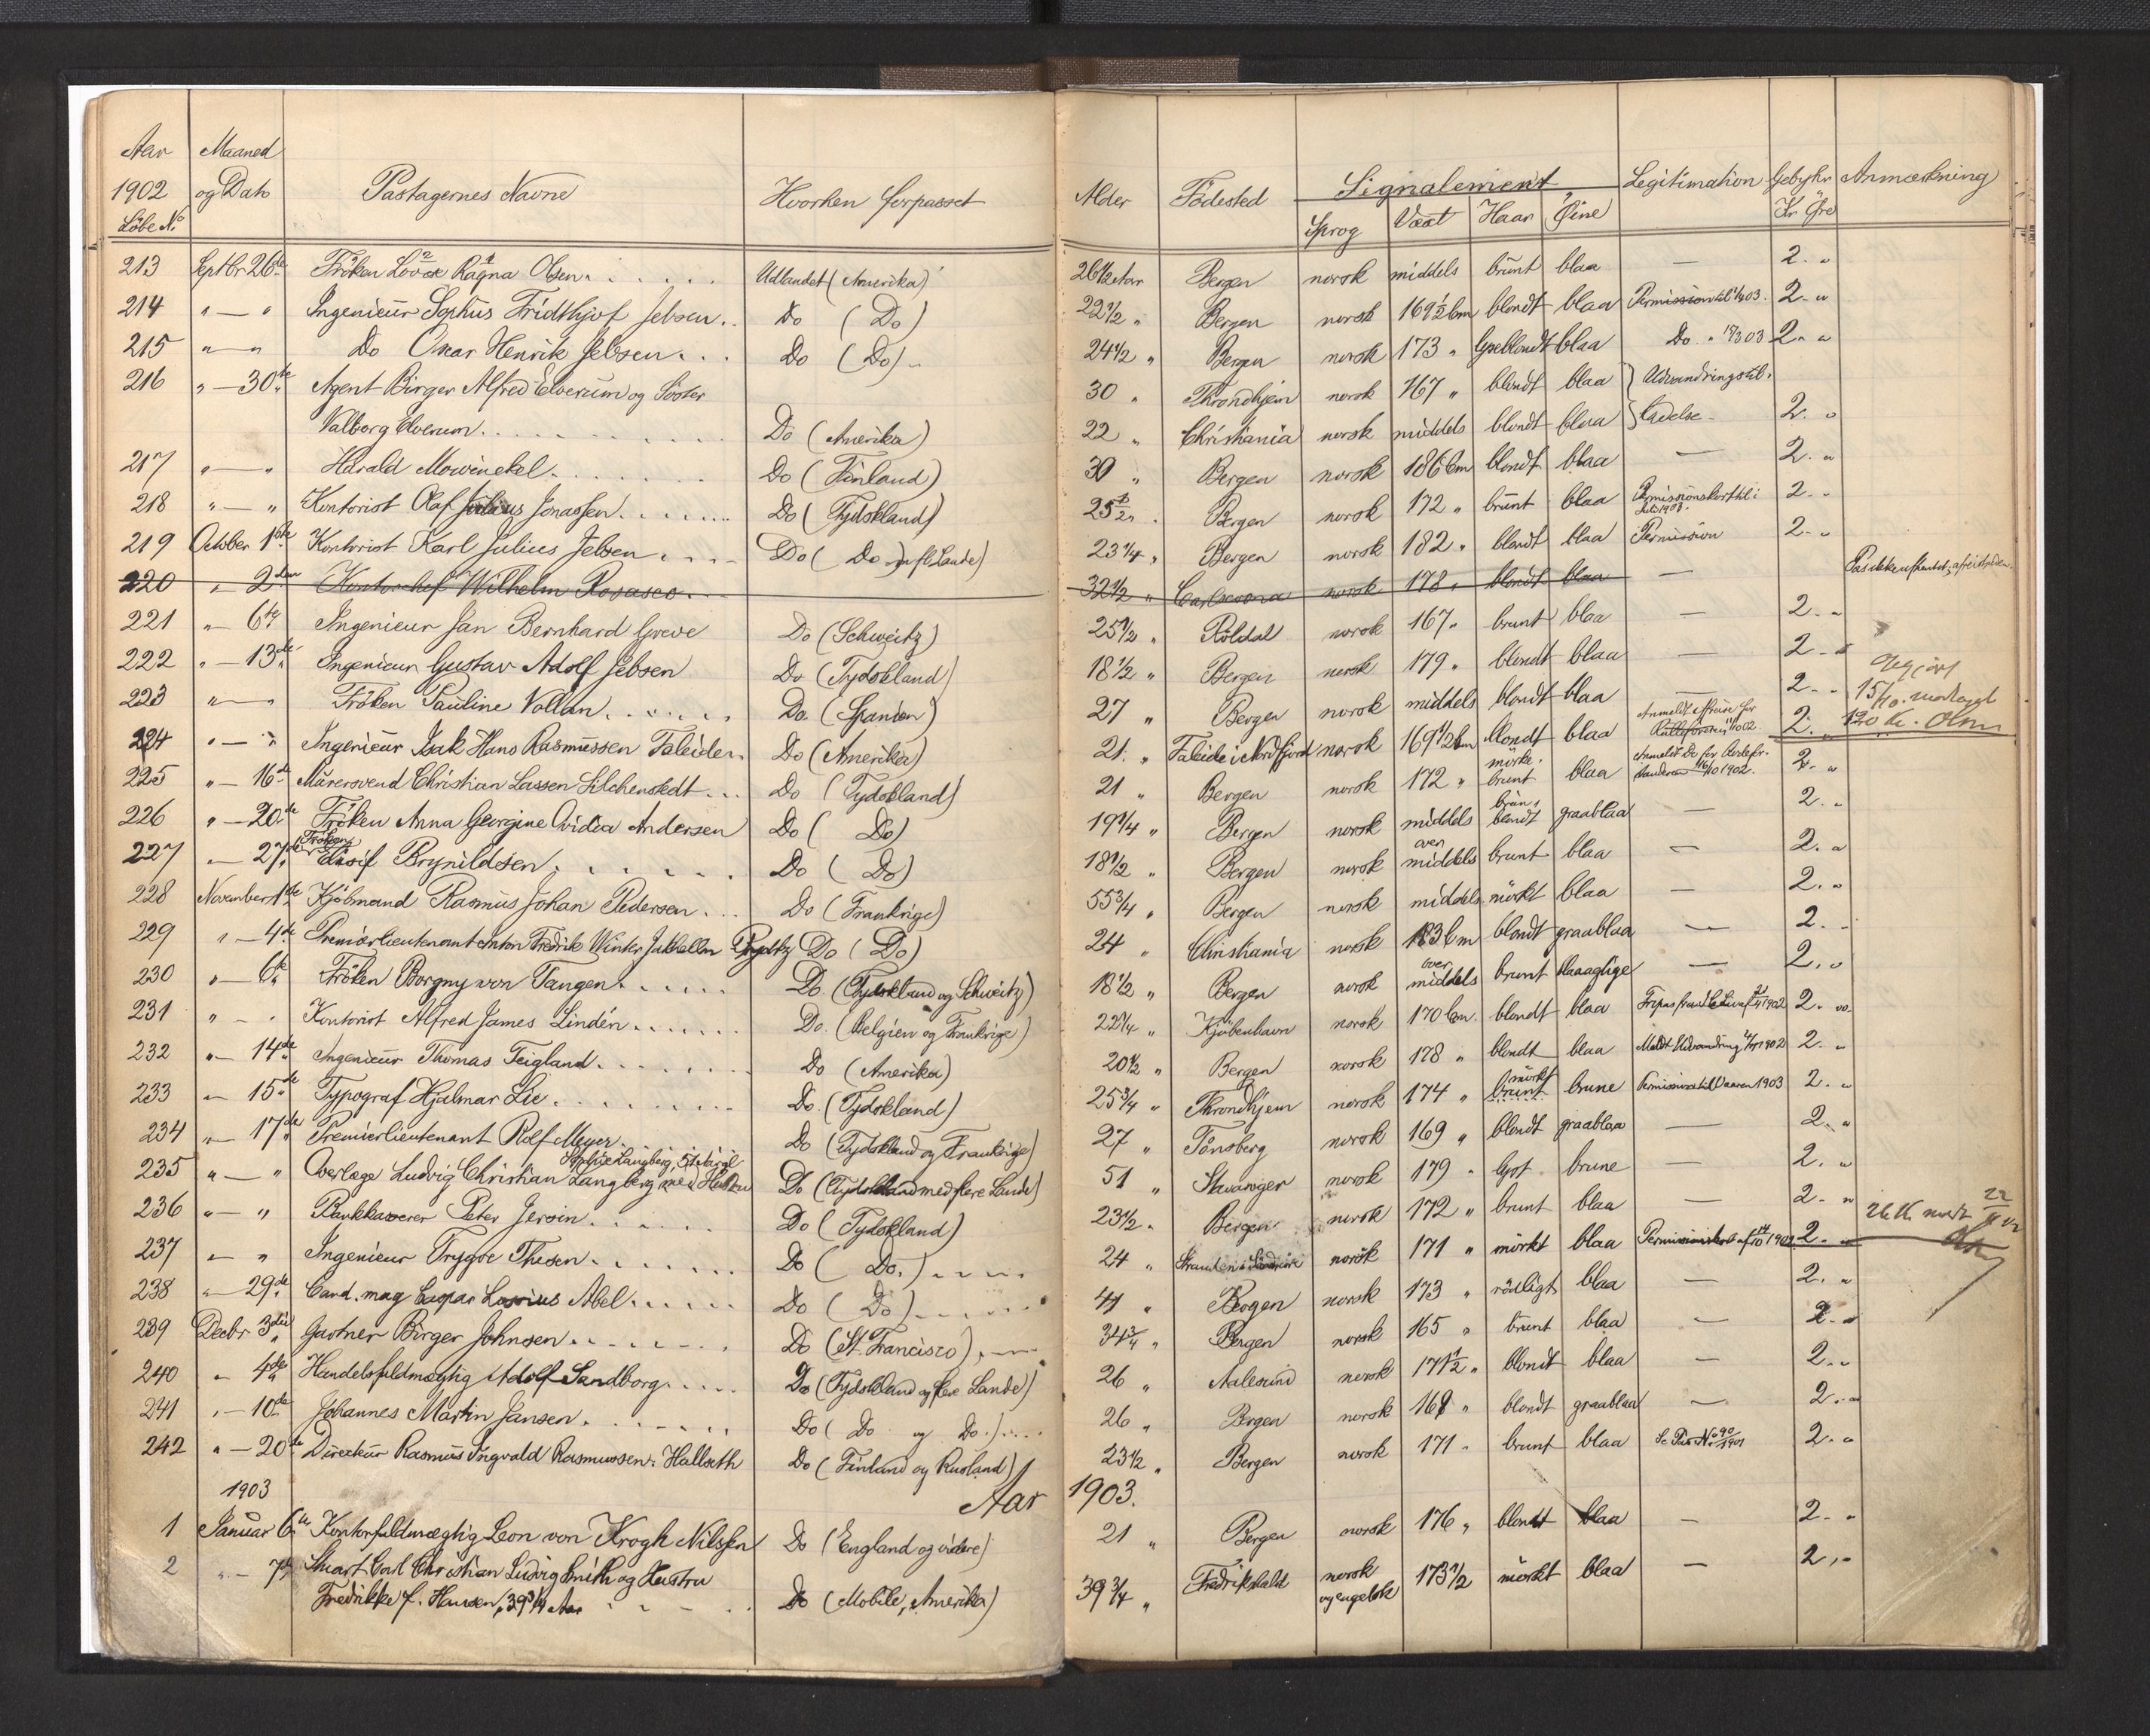 Aar Maaned
1902 og Dato Passagernes Navne Hvorhen forpasset Alder Födested Signalement Legitimation Gebyhr Anmærkning
Löbe No Sprog Væxt Haar Öine Kr Öre
213 Septbr 26de Fröken Ragna Olsen Udlandet (Amerika) 26 1/2 Aar Bergen norsk middels brunt blaa — 2. "
214 " — " Ingenieur Sophus Fridthjof Jebsen.. Do (Do) 22 1/2 " Bergen norsk 169 1/2 Cm blondt blaa Permission til 03. 2. "
215 " — " Do Oscar Henrik Jebsen... Do (Do) 24 1/2 " Bergen norsk 173 " blaa Do " 03 2. "
216 " — 30te Agent Birger Alfred Elverum og Söster 30 " Throndhjem norsk 167 " blondt blaa } Udvandringstil-
Valborg Elverum Do (Amerika) 22 " Christiania norsk middels blondt blaa } ladelse 2. "
217 " — " Harald Mowinckel Do (Finland) 30 " Bergen norsk 186 Cm blondt blaa — 2. "
218 " — " Kontorist Olaf Julius Jonassen Do (Tydskland) 25 1/2 " Bergen norsk 172 " brunt blaa Permissionskort til 2. "
219 October 1ste Kontorist Karl Julius Jebsen Do (Do fl Lande) 23 1/4 " Bergen norsk 182 " blondt blaa Permission 2. "
220 " 2den Kontorchef Wilhelm Rosasco 32 1/2 " Carlscrona norsk 178 " blondt blaa — Pas ikke afhentet,
221 " 6te Ingenieur Jan Bernhard Greve Do (Schweitz) 25 1/2 " Röldal norsk 167 " brunt blaa — 2. "
222 " — 13de Ingenieur Gustav Adolf Jebsen Do (Tydskland) 18 1/2 " Bergen norsk 179 " blondt blaa — 2. "
223 " — " Fröken Pauline Vollan Do. (Spanien) 27 " Bergen norsk middels blondt blaa — 2. " 15/10. modtaget
224 " — " Ingenieur Isak Hans Rasmussen Faleide. Do (Amerika) 21. " Faleide i Nordfjord norsk 169 1/2 Cm blondt blaa Anmeldt for 1902. 2. " 120 Kr.
225 " — 16de Murersvend Christian Lassen Silchenstedt Do (Tydskland) 21 " Bergen norsk 172 " mörke- brunt blaa Anmeldt Do for 16/10 1902. 2. "
226 " — 20de Fröken Anna Georgine Ovidia Andersen Do (Do) 19 1/4 " Bergen norsk middels brun- blondt graablaa — 2. "
227 " — 27de Fröken Brynildsen Do (Do) 18 1/2 " Bergen norsk over middels brunt blaa — 2. "
228 November 1ste Kjöbmand Rasmus Johan Pedersen Do (Frankrige) 55 3/4 " Bergen norsk middels mörkt blaa — 2. "
229 " — 4de Premierlieutenant Anton Fredrik Winter Jakhelln Prydtz Do (Do) 24 " Christiania norsk 183 Cm blondt graablaa — 2. "
230 " — 6te Fröken Borgny von Tangen Do. (Tydskland og Schweitz) 18 1/2 " Bergen norsk over middels brunt blaaaglige — 2. "
231 " — " Kontorist Alfred James Lindén Do. (Belgien og Frankrige) 22 1/4 " Kjöbenhavn norsk 170 Cm. blondt blaa 1902 2. "
232 " — 14de Ingenieur Thomas Teigland Do (Amerika) 20 1/2 " Bergen norsk 178 " blondt blaa Meldt Udvandring 1902 2. "
233 " — 15de Typograf Hjalmar Lie Do. (Tydskland) 25 3/4 " Throndhjem norsk 174 " mörkt brunt brune Permission til Vaaren 1903 2. "
234 " — 17de Premierlieutenant Rolf Meyer. Do (Tydskland og Frankrige) 27 " Tönsberg norsk 169 " blondt graablaa — 2. "
235 " — " Overlæge Ludvig Christian Langberg med Hustru Sophie Langberg, Do (Tydskland med flere Lande) 51 " Stavanger norsk 179 " brune — 2. "
236 " — " Bankkasserer Peter Jersin Do (Tydskland) 23 1/2 " Bergen norsk 172 " brunt blaa — 2. "
237 " — " Ingenieur Trygve Thesen Do (Do.) 24 " norsk 171 " mörkt blaa Permissionskort af 1902 2. "
238 " — 29de Cand. mag Caspar Abel Do (Do) 41 " Bergen norsk 173 " rödligt blaa — 2. "
239 Decbr 3die Gartner Birger Johnsen Do (St. Francisco) 34 3/4 " Bergen norsk 165 " brunt blaa — 2. "
240 " 4de Handelsfuldmægtig Adolf Sandborg Do (Tydskland og flere Lande) 26 " Aalesund norsk 171 1/2 " blondt blaa — 2. "
241 " — 10de Johannes Martin Jansen Do (Do og Do.) 26 " Bergen norsk 168 " blondt graablaa — 2. "
242 " — 20de Directeur Rasmus Ingvald Rasmussen Hallseth Do (Finland og Rusland) 23 1/2 " Bergen norsk 171 " brunt blaa Se Pas No 90/1901 2. "
1903 Aar 1903.
1 Januar 6te Kontorfuldmægtig Leon von Krogh Nilssen Do (England og videre) 21 " Bergen norsk 176 " blondt blaa — 2. "
2 " — 7de Stuart Carl Christian Ludvig Smith og Hustru 39 3/4 " Fredrikshald norsk 173 1/2 mörkt blaa — 2. "
Fredrikke f. Hansen, 39 3/4 Aar Do (Mobile, Amerika) og engelsk